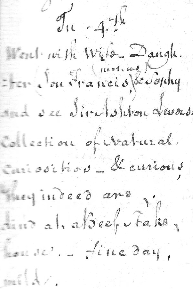 Tu. 4.th
Went with Wife - Daugh
ter Son Francis & Sophy
and see Sir Ashton Levers
Collection of Natural
curiosities - & curious
they indeed are
dind at a Beef Stake
house. - fine day,
mild.